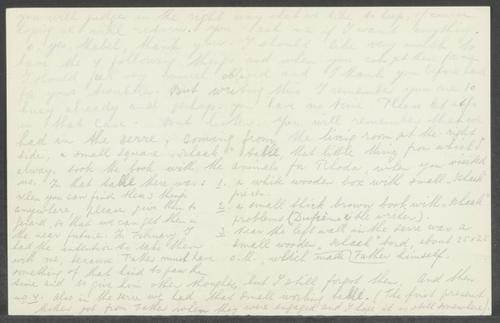 you will judge in the right way what we like, to keep, of course
copying we will return. You ask me if I want anything.
O, yes, Mabel, thank you. I should like very much to
have the 4 following things and when you can get them for me
I should be very much obliged and I thank you before hand
for your troubles. But writing this I remember you are so
busy already and perhaps you have no time. Please let it
in that case. You will remember that we
had in the serre, coming from the living room at the right
side, a small square "black" table, that little thing from which I
always took the book with the animals for Rhoda, when you visited
me. In that table there were: 1. a white wooden box with small "black"
when you can find these things pencils for
anywhere, please give them to 2. a small thick brown book with "black"
so that we can get them in problems
the near future. In February I 3. Near the left wall in the serre was a
had the intention to take them small wooden "black" bord, about 25 x 25
with me, because Father must have c.M. which made Father himself.
something of that kind to pass the
time and to give him other thoughts, but I still forgot them. And then
no 4. Also in the serre we had that small working table. (The first present
Mother got from Father when they were engaged and I hope it is still somewhere)